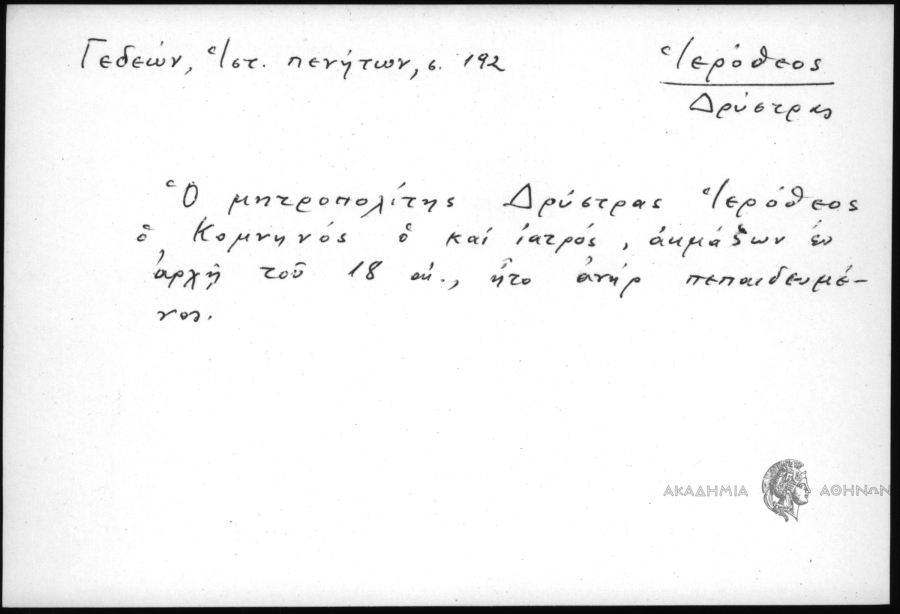 Γεδεών, Ἱστ. πενήτων, σ. 192
Ἱερόθεος
Δρύστρας
Ὁ μητροπολίτης Δρύστρας Ἱερόθεος
ὁ Κομνηνός ὁ καί ἰατρός, ἀκμάζων ἐν
ἀρχῇ τοῦ 18 αἰ., ἦτο ἀνήρ πεπαιδευμέ-
νος.
ΑΚΑΔΗΜΙΑ ΑΘΗΝΩΝ